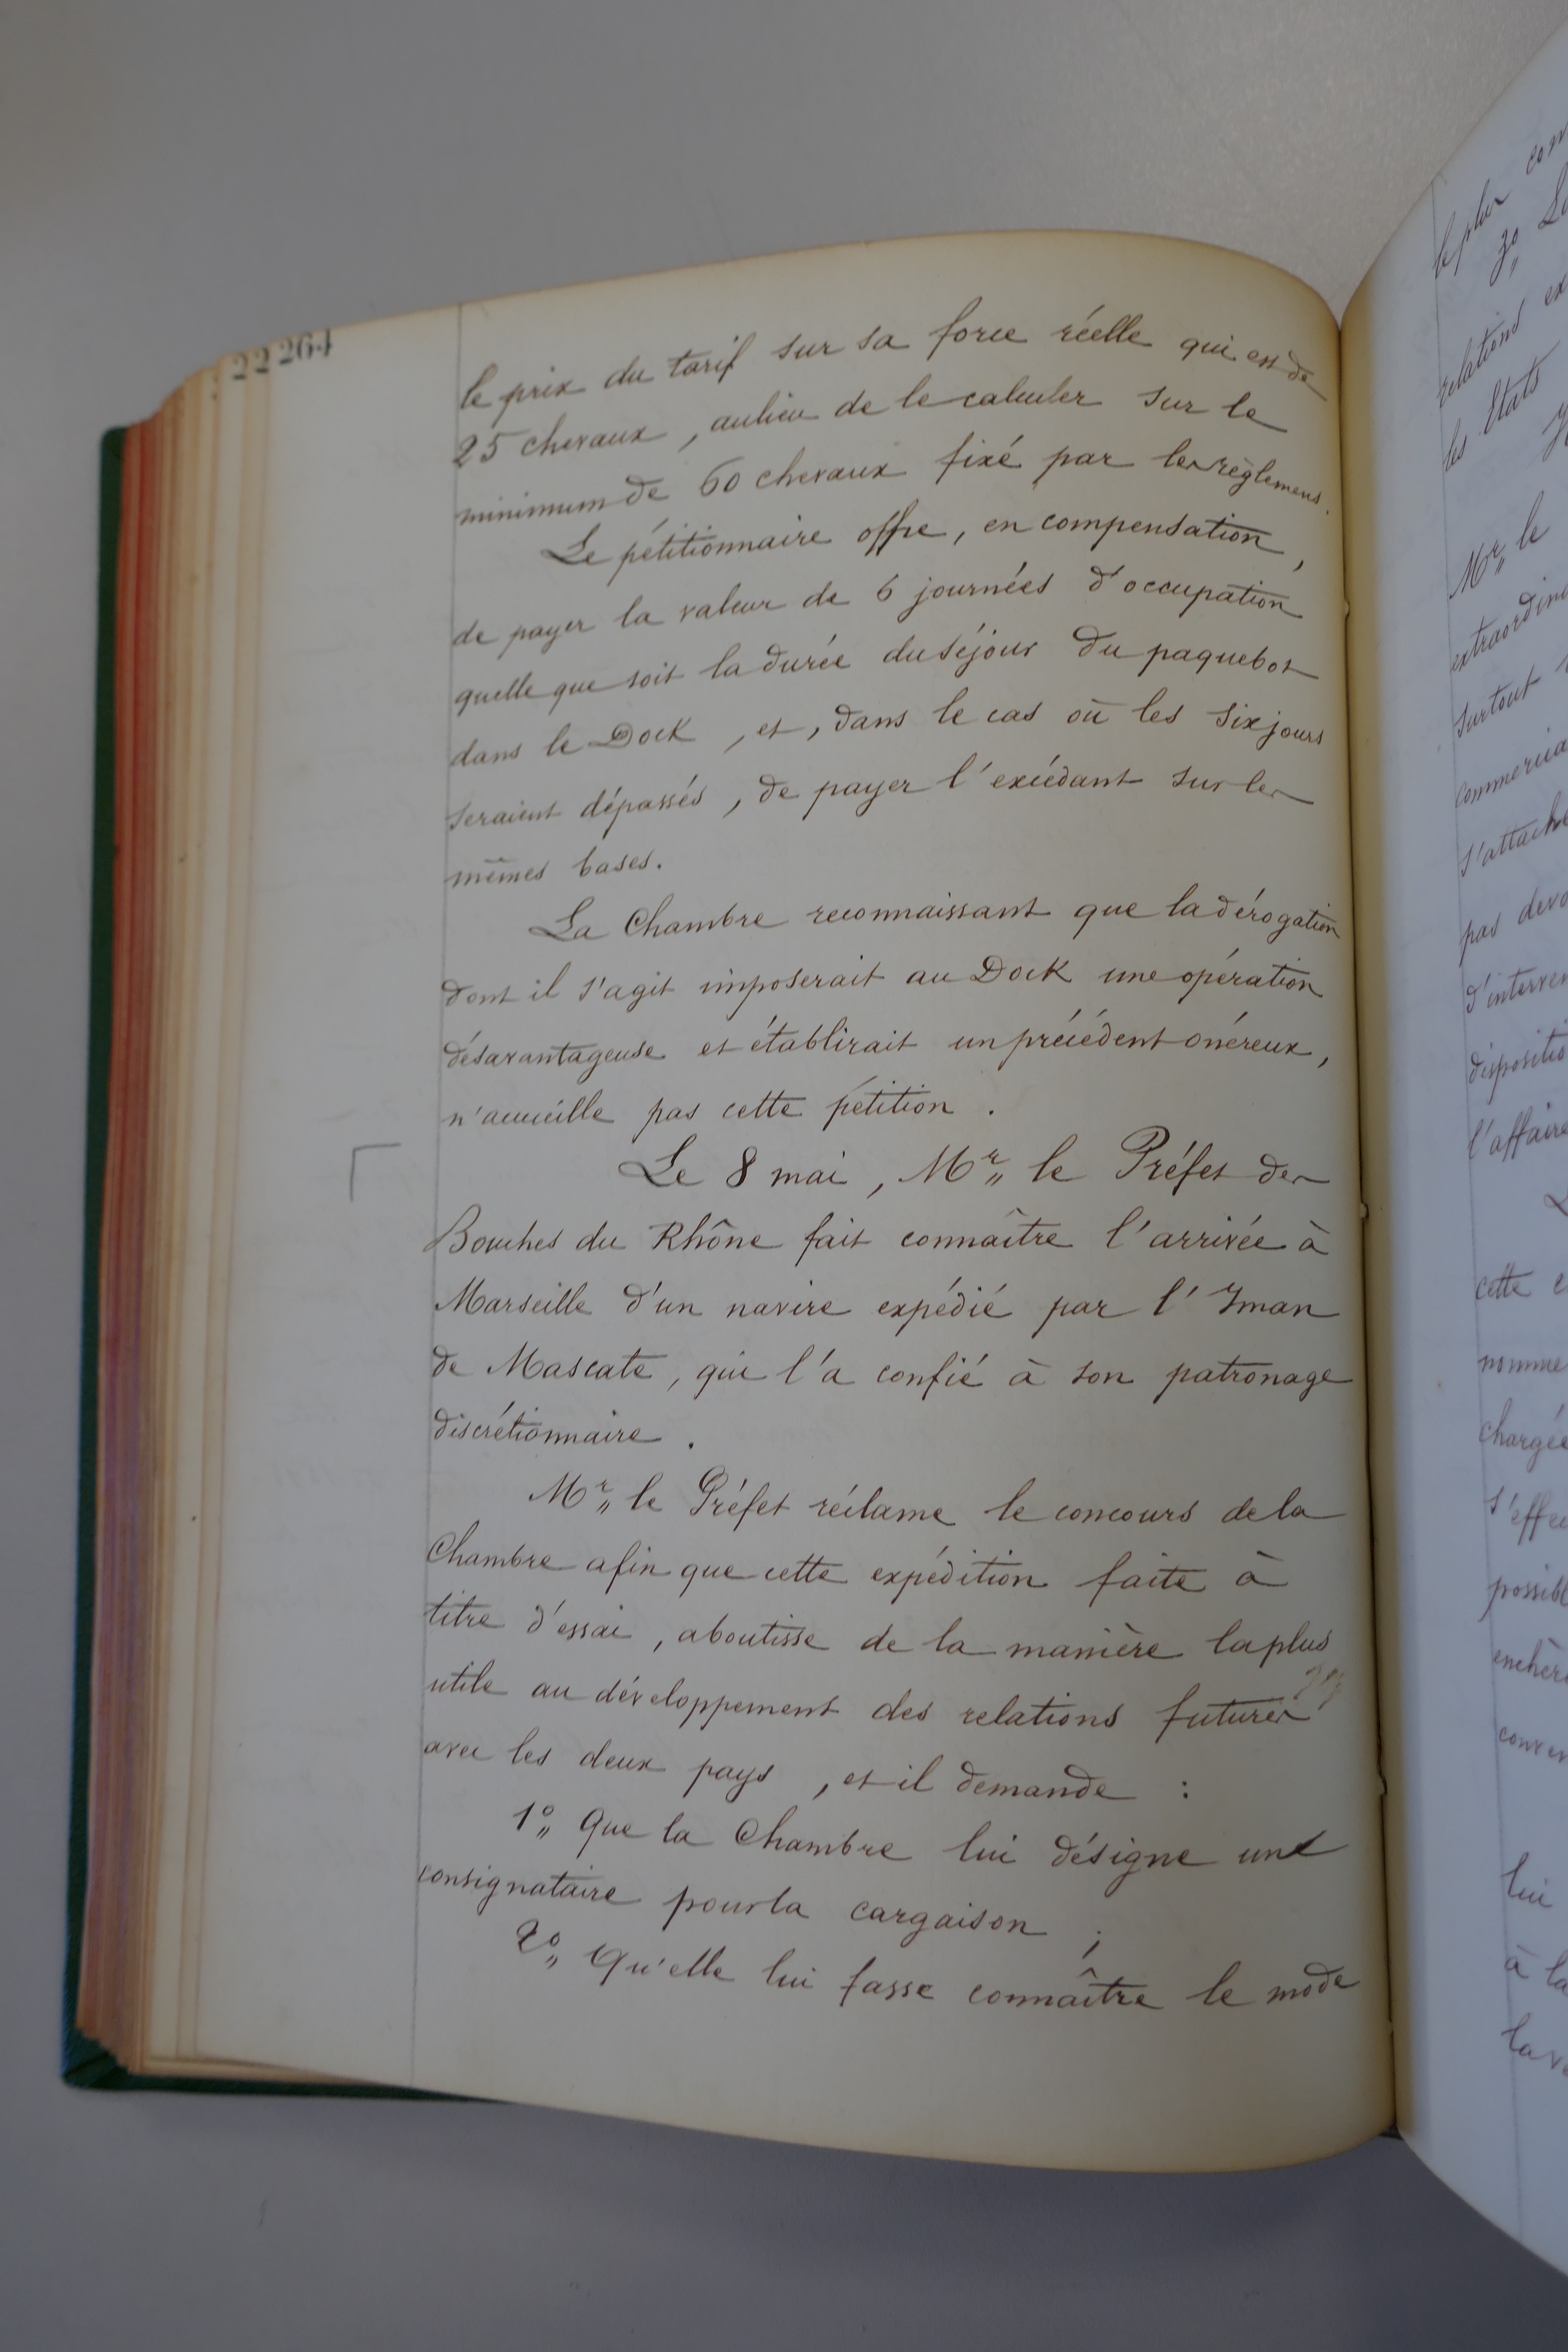 22 264
le prix du tarif sur sa force réelle qui est de
25 chevaux, au lieu de le calculer sur le
minimum de 60 chevaux fixé par les règlemens.
Le pétitionnaire offre, en compensation,
de payer la valeur de 6 journées d'occupation
quelle que soit la durée du séjour du paquebot
dans le Dock, et, dans le cas où les six jours
seraient dépassés, de payer l'excédant sur les
mêmes bases.
La Chambre reconnaissant que la dérogation
dont il s'agit imposerait au Dock une opération
désavantageuse et établirait un précédent onéreux,
n'accueille pas cette pétition.
Le 8 mai, Mr„ le Préfet des
Bouches du Rhône fait connaître l'arrivée à
Marseille d'un navire expédié par l'Iman
de Mascate, qui l'a confié à son patronage
discrétionnaire.
Mr„ le Préfet réclame le concours de la
Chambre afin que cette expédition faite à
titre d'essai, aboutisse de la manière la plus
utile au développement des relations futures
avec les deux pays, et il demande :
1°„ Que la Chambre lui désigne un
consignataire pour la cargaison ;
2°„ Qu'elle lui fasse connaître le mode
le plus
3°„
relations
les Etats
Mr„ le
surtout
pas
cette
lui
à la